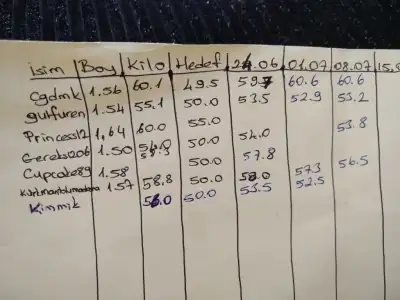 isim Boy Kilo Hedef 24.06 01.07 08.07 15.
Cgdmk 1.56 60.1 49.5 59.7 60.6 60.6
gulfuren 1.54 55.1 50.0 53.5 52.9 53.2
Princes12 1,64 60.0 55.0 53.8
Gerebs206 1.50 50.0 54.0
Cupcake89 1.58 50.0 57.8 56.5
1.57 58.8 50.0 57.3
Kinmik 50.0 53.5 52.5